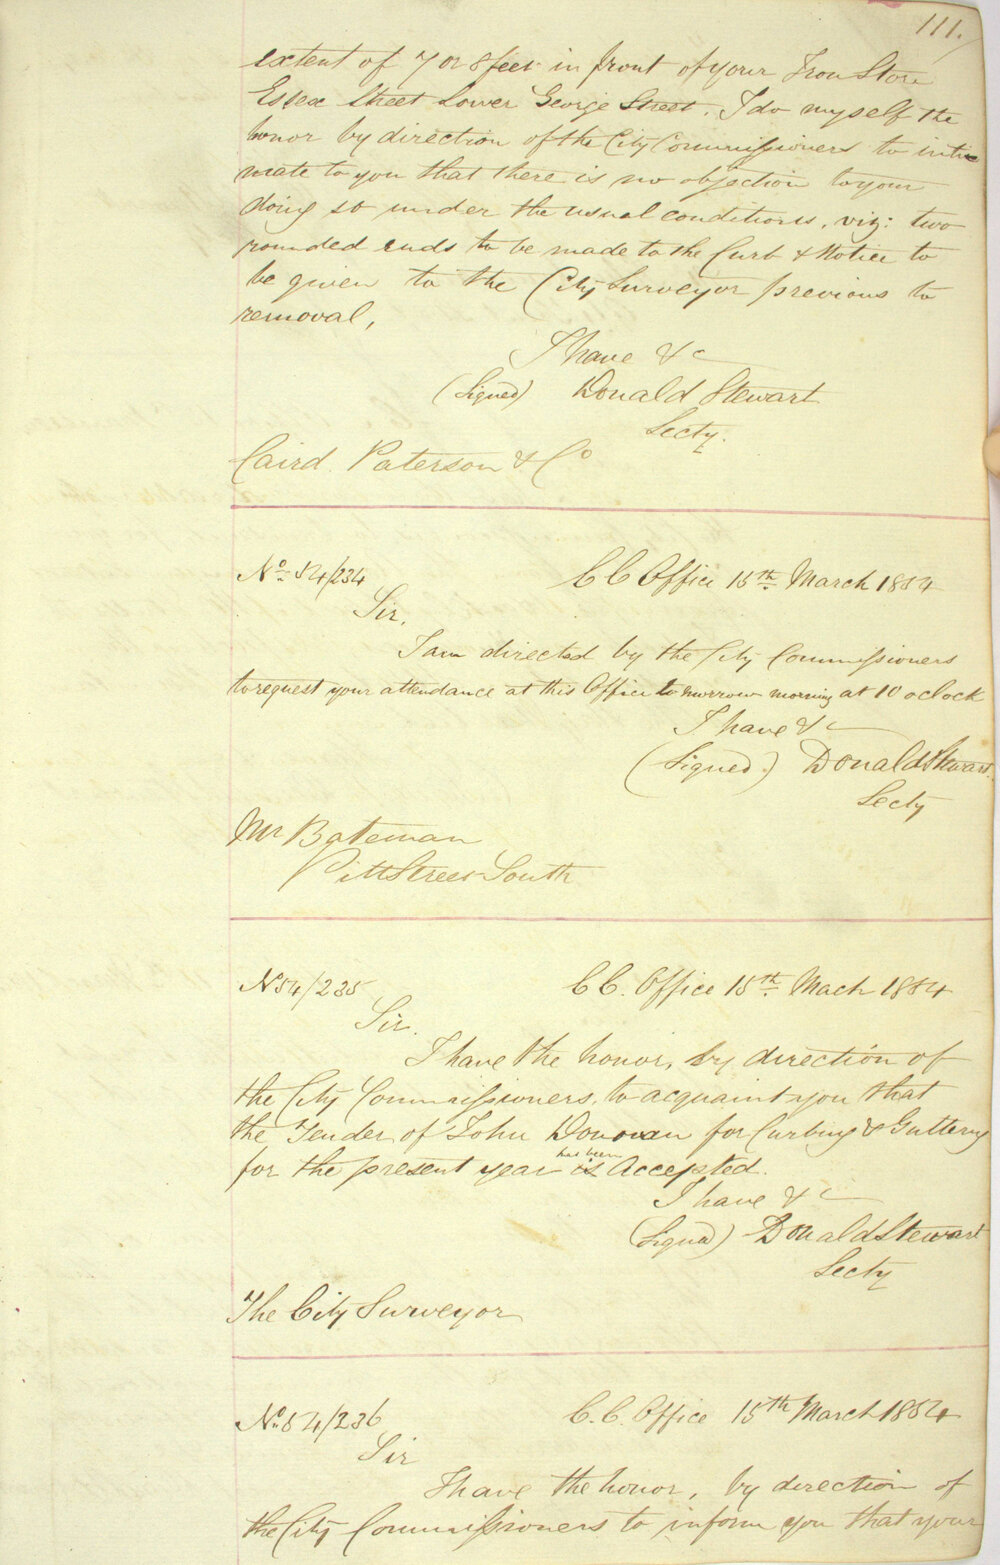 111.
extent of 7 or 8 feet in front of your Iron Store
Essex Street Lower George Street. I do myself the
honor by direction of the City Commissioners to inti
mate to you that there is no objection to your
doing so under the usual conditions, viz: two
rounded ends to be made to the Curb & Notice to
be given to the City Surveyor previous to
removal,
I have &c
(Signed) Donald Stewart
Secty.
Caird Paterson & Co
No. 54/234 C C Office 15th March 1854
Sir,
I am directed by the City Commissioners
to request your attendance at this Office to morrow morning at 10 oclock
I have &c
(Signed) Donald Stewart
Secty
Mr Bateman
Pitt Street South
No 54/235 C C. Office 15th March 1854
Sir.
I have the honor, by direction of
the City Commissioners, to acquaint you that
the Tender of John Donovan for Curbing & Guttering
for the present year is has been Accepted.
I have &c
(Signed) Donald Stewart
Secty
The City Surveyor
No. 54/236 C. C. Office 15th March 1854
Sir
I have the honor, by direction of
the City Commissioners to inform you that your